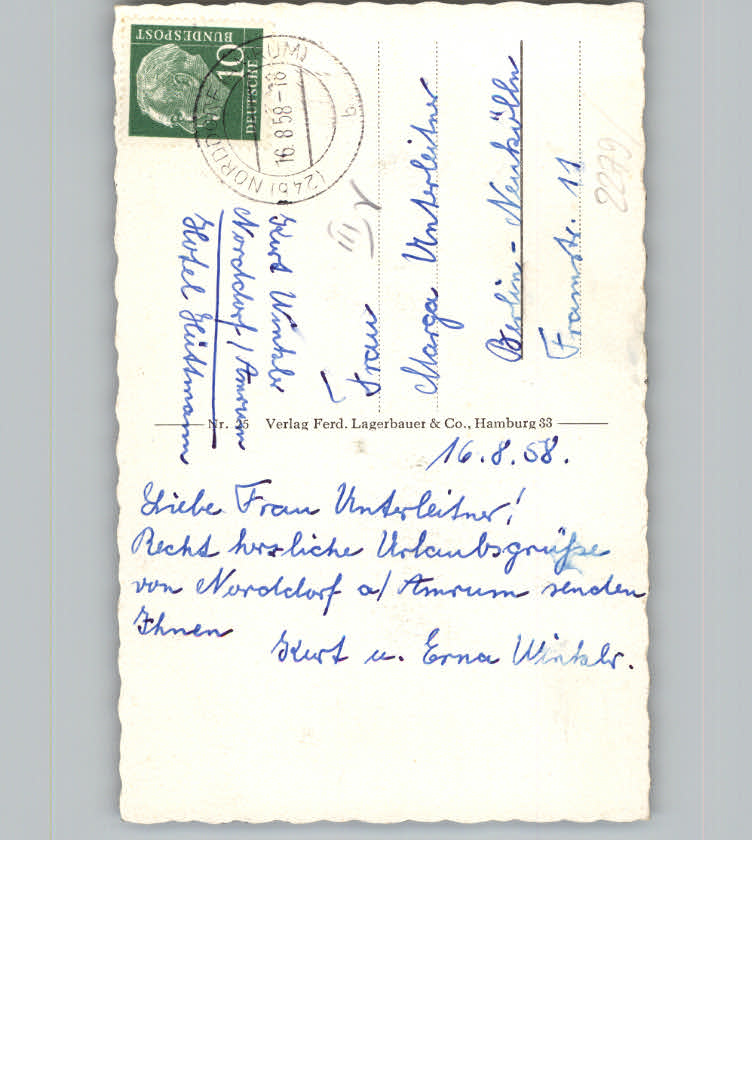 DEUTSCHE
BUNDESPOST
10
(24b) NORDDORF (AMRUM)
16.8.58-18
b
Kurt Winkler
Norddorf/Amrum
Hotel Hüttmann
III
Frau
Marga Unterleitner
Berlin-Neukölln
Framstr. 11
2279/
Nr. 25 Verlag Ferd. Lagerbauer & Co., Hamburg 33
16.8.58.
Liebe Frau Unterleitner!
Recht herzliche Urlaubsgrüße
von Norddorf a/ Amrum senden
Ihnen
Kurt u. Erna Winkler.